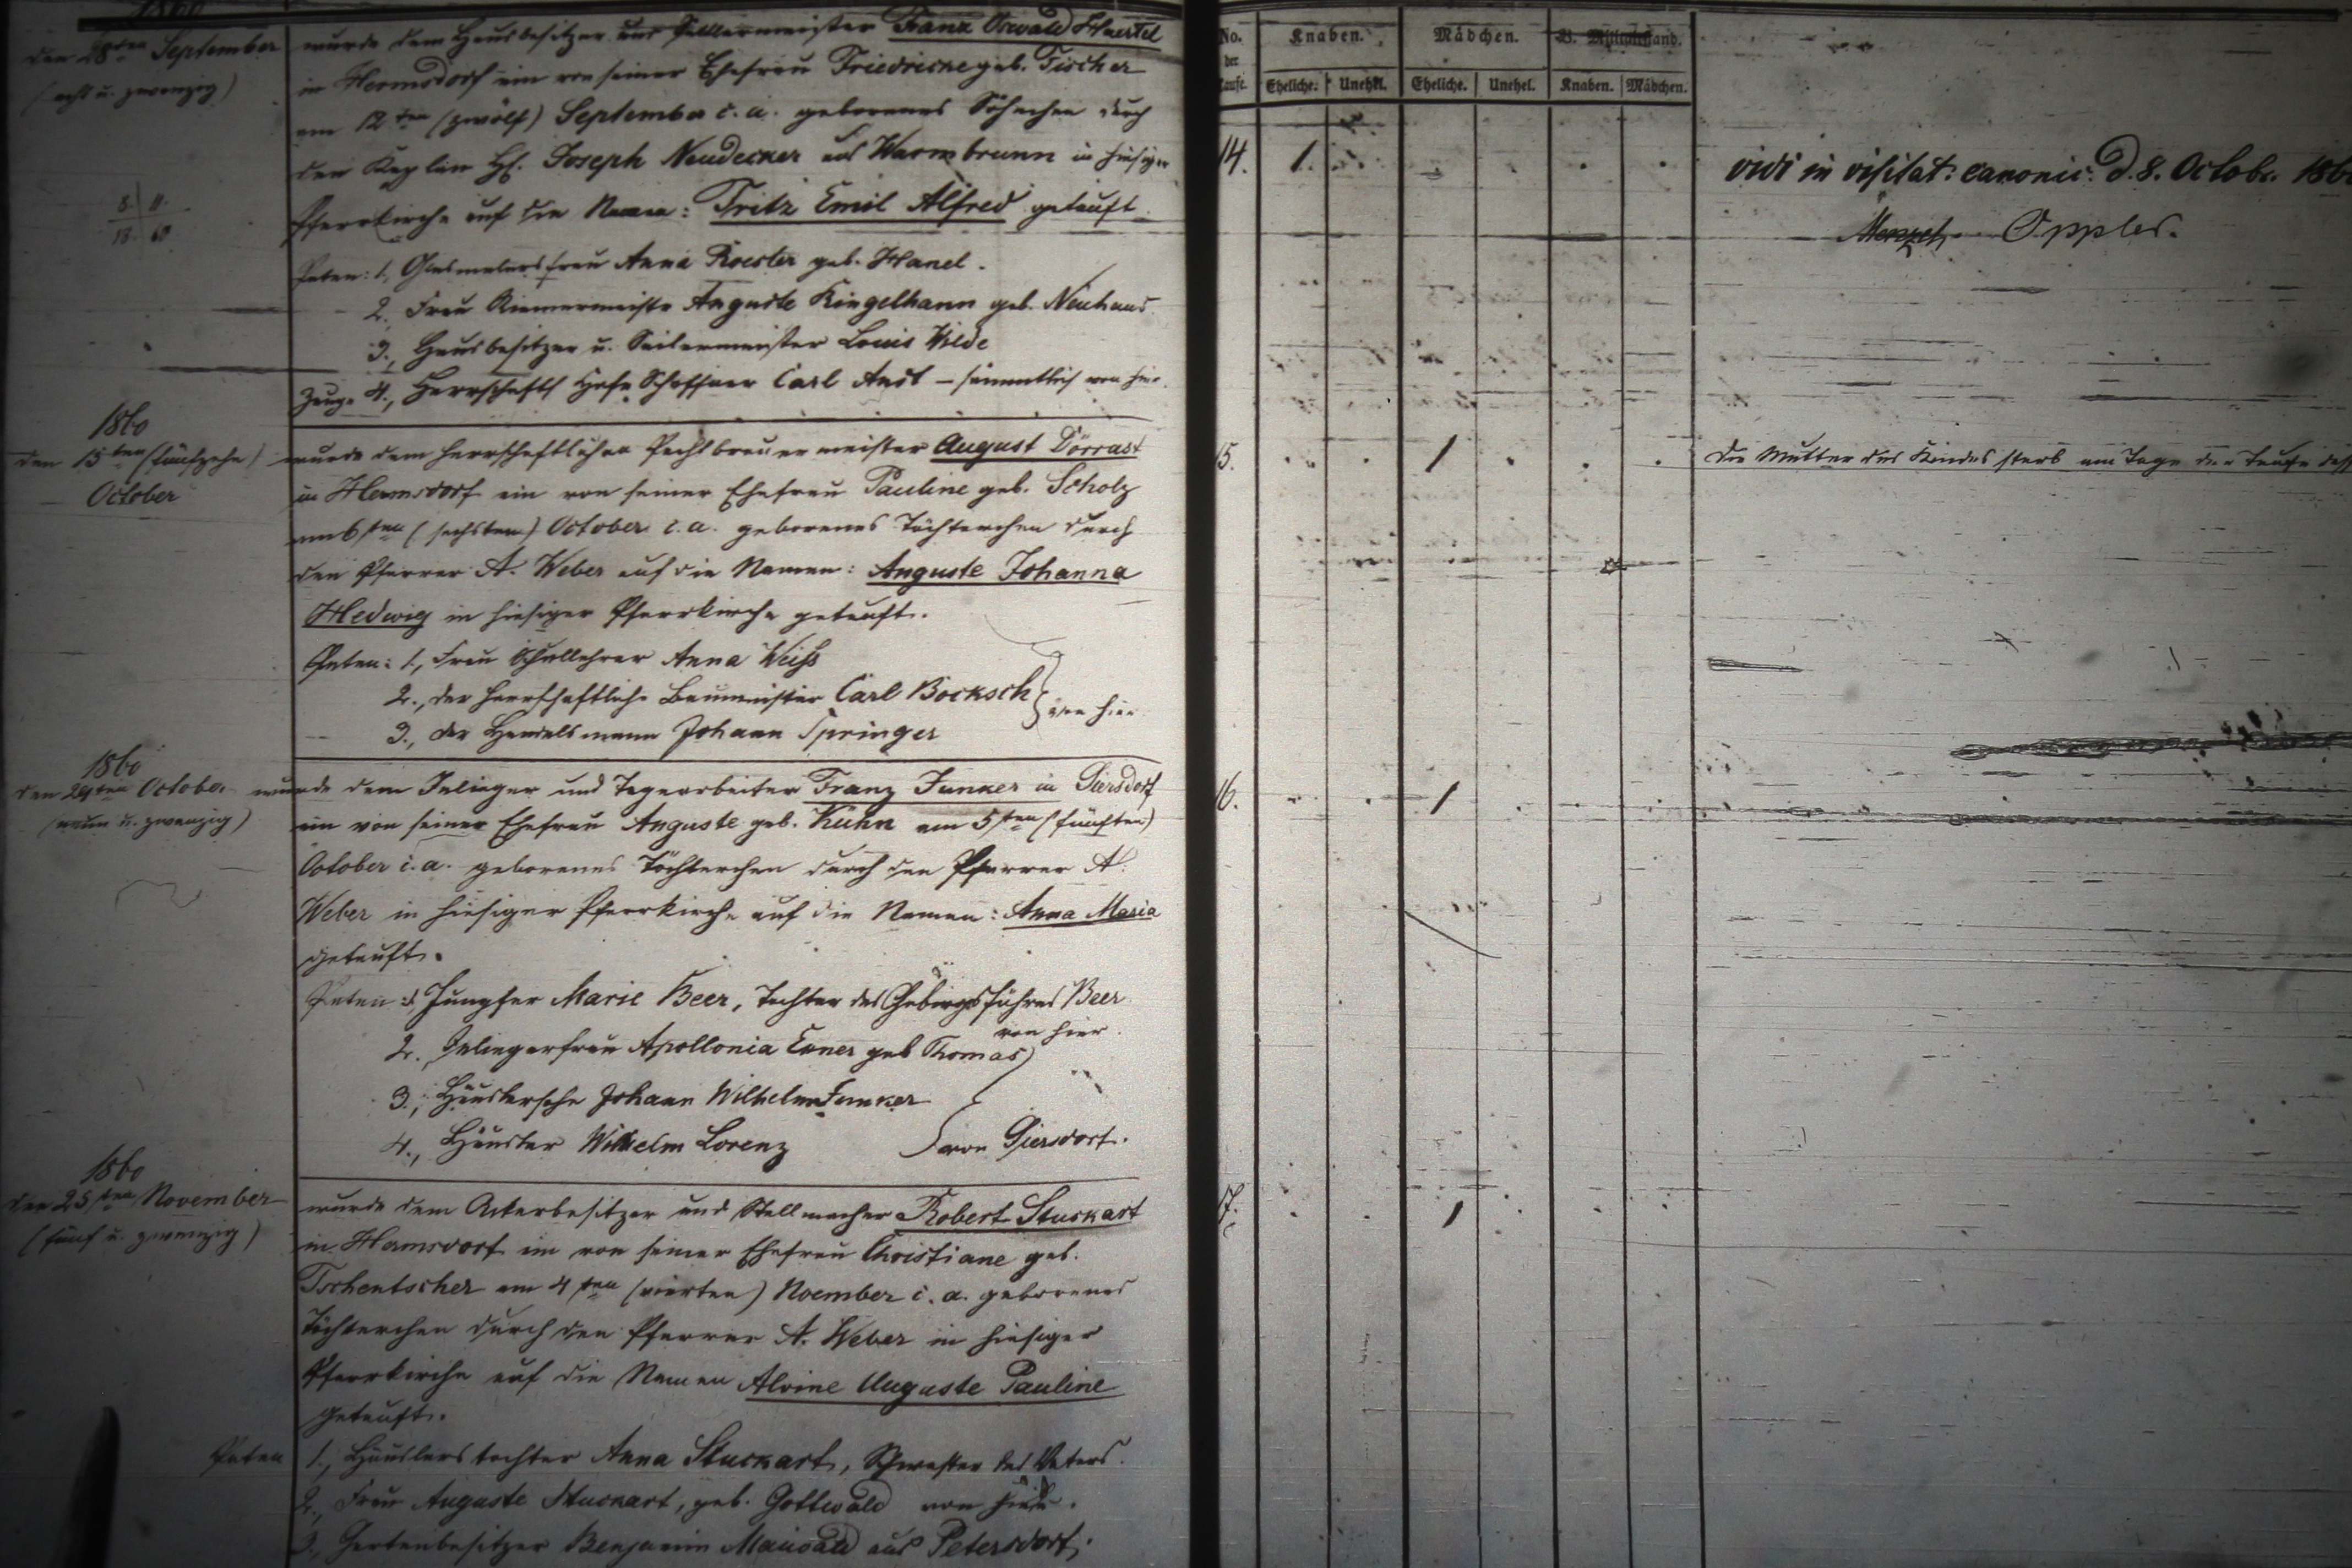 1860
den 28ten September
(acht u. zwanzig)
wurde dem Hausbesitzer und Sattlermeister Franz Oswald Haertel
in Hermsdorf ein von seiner Ehefrau Friedricke geb. Fischer
am 12ten (zwölf) September c. a. geborenes Söhnchen durch
den Kaplan H. Joseph Neudecker aus Warmbrunn in hiesiger
Pfarrkirche auf die Namen: Fritz Emil Alfred getauft.
8. 11.
18. 60
Paten: 1, Glasmalersfrau Anna Roesler geb. Hanel.
2. Frau Riemermeister Auguste Ringelhann geb. Neuhaus
3., Hausbesitzer u. Seilermeister Louis Wilde
Zeuge 4., Herrschaftl Hofe Schaffner Carl Anst – sämmtlich von hier.
1860
den 15ten (fünfzehn)
October
wurde dem herrschaftlichen Pachtbrauermeister August Dörrast
in Hermsdorf ein von seiner Ehefrau Pauline geb. Scholz
am 6sten (sechsten) October c. a. geborenes Töchterchen durch
den Pfarrer A. Weber auf die Namen: Auguste Johanna
Hedwig in hiesiger Pfarrkirche getauft.
Paten: 1., Frau Schullehrer Anna Weiß
2., der herrschaftliche Baumeister Carl Böcksch
3., der Handelsmann Johann Springer
von hier
1860
den 29ten October
(neun u. zwanzig)
wurde dem Inlieger und Tagearbeiter Franz Junker in Giersdorf
ein von seiner Ehefrau Auguste geb. Kuhn am 5ten (fünften)
October c. a. geborenes Töchterchen durch den Pfarrer A.
Weber in hiesiger Pfarrkirche auf die Namen: Anna Maria
getauft.
Paten: 1 Jungfer Marie Beer, Tochter des Gebirgsführers Beer
von hier.
2. Inliegerfrau Apollonia Exner geb Thomas
3., Häuslersohn Johann Wilhelm Junker
4., Häusler Wilhelm Lorenz
von Giersdorf.
1860
den 25sten November
(fünf u. zwanzig)
wurde dem Ackerbesitzer und Stellmacher Robert Stuckart
in Hermsdorf ein von seiner Ehefrau Christiane geb.
Tschentscher am 4ten (vierten) Noember c. a. geborenes
Töchterchen durch den Pfarrer A. Weber in hiesiger
Pfarrkirche auf die Namen Alvine Auguste Pauline
getauft.
Paten 1., Häuslerstochter Anna Stuckart, Schwester des Vaters.
2., Frau Auguste Stuckart, geb. Gottwald von hier.
3., Gartenbesitzer Benjamin Maiwald aus Petersdorf.
No. der Taufe. Knaben. Mädchen. B. Militairstand.
Eheliche. Unehel. Eheliche. Unehel. Knaben. Mädchen.
14. 1.
vidi in visitat. canonic. d. 8. Octobr. 186
Menzel. Oppler.
15. 1
Die Mutter des Kindes starb am Tage der Taufe
16. 1
17. 1